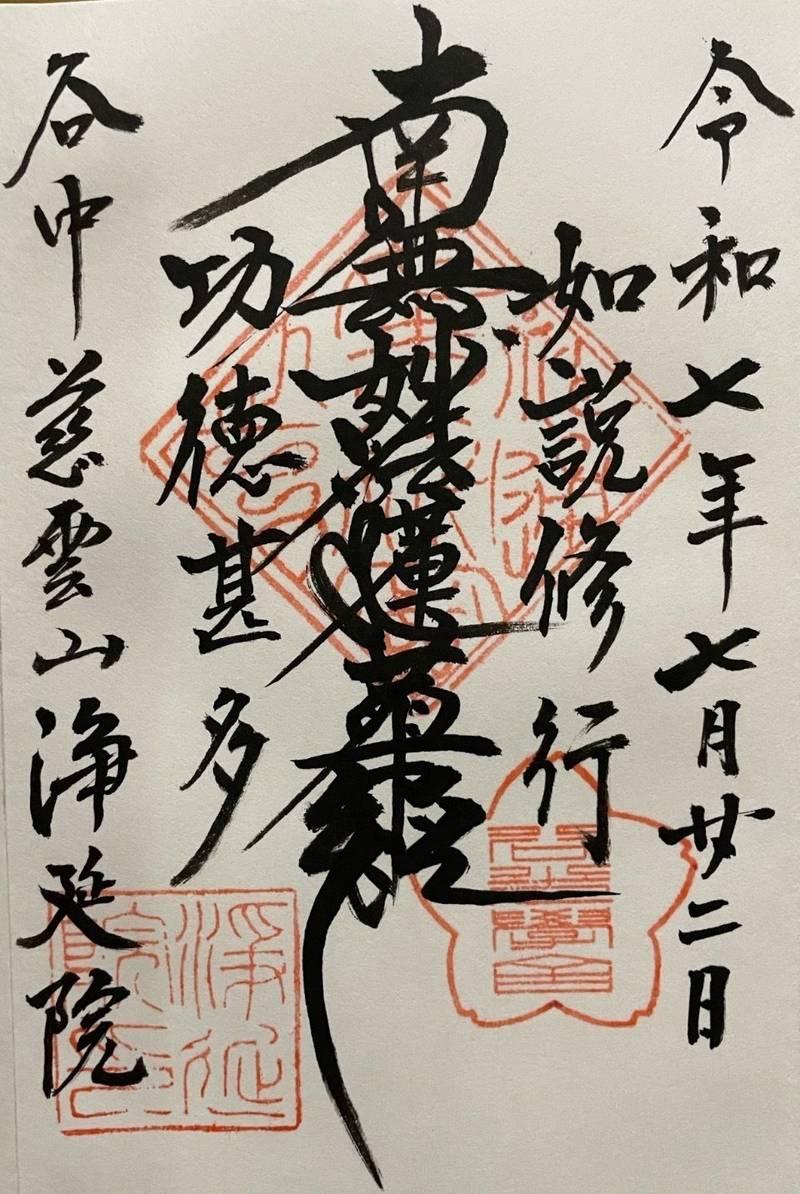 令和七年七月廿二日
如説修行
南無妙法蓮華経
功徳甚多
谷中慈雲山浄延院
浄延
院